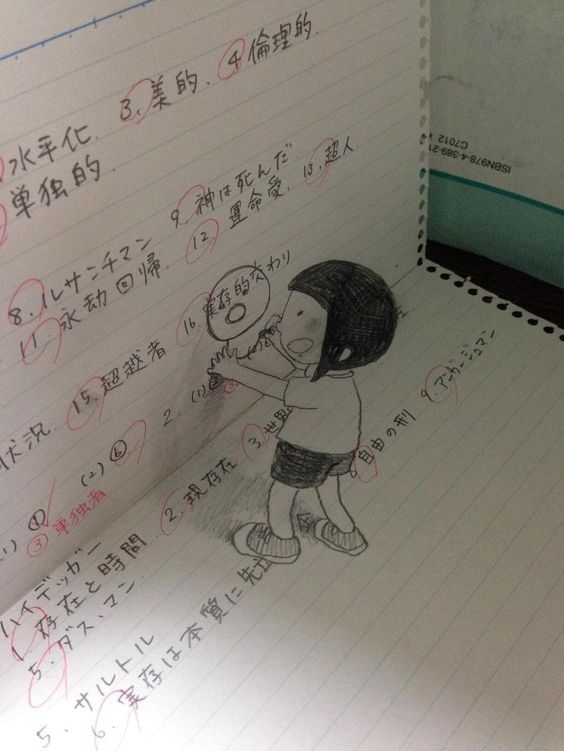 3. 美的. ④ 倫理的.
水平化.
単独的.
9. 神は死んだ
8. ルサンチマン
12 運命愛. 13. 超人
11. 永劫回帰.
16. 実存的交わり
15. 超越者
状況.
2. (1)
(2) ⑥
(1) ①
③ 単独者
ハイデッガー
1. 存在と時間
2. 現存在
3. 世界
5. ダス・マン
8. 自由の刑
9. アンガージュマン
5. サルトル
6. 実存は本質に先立
ISBN978-4-389-21
C7012